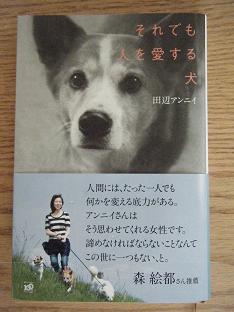 それでも
人を愛する
犬
田辺アンニイ
人間には、たった一人でも
何かを変える底力がある。
アンニイさんは
そう思わせてくれる女性です。
諦めなければならないことなんて
この世に一つもない、と。
森 絵都さん推薦